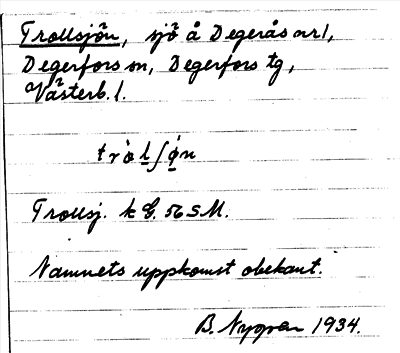 Trollsjön, sjö å Degerås nr 1,
Degerfors sn, Degerfors tg,
Västerb. l.
tròlʃø̀n
Trollsj. k G. 56 S M.
Namnets uppkomst obekant.
B. Nygren 1934.